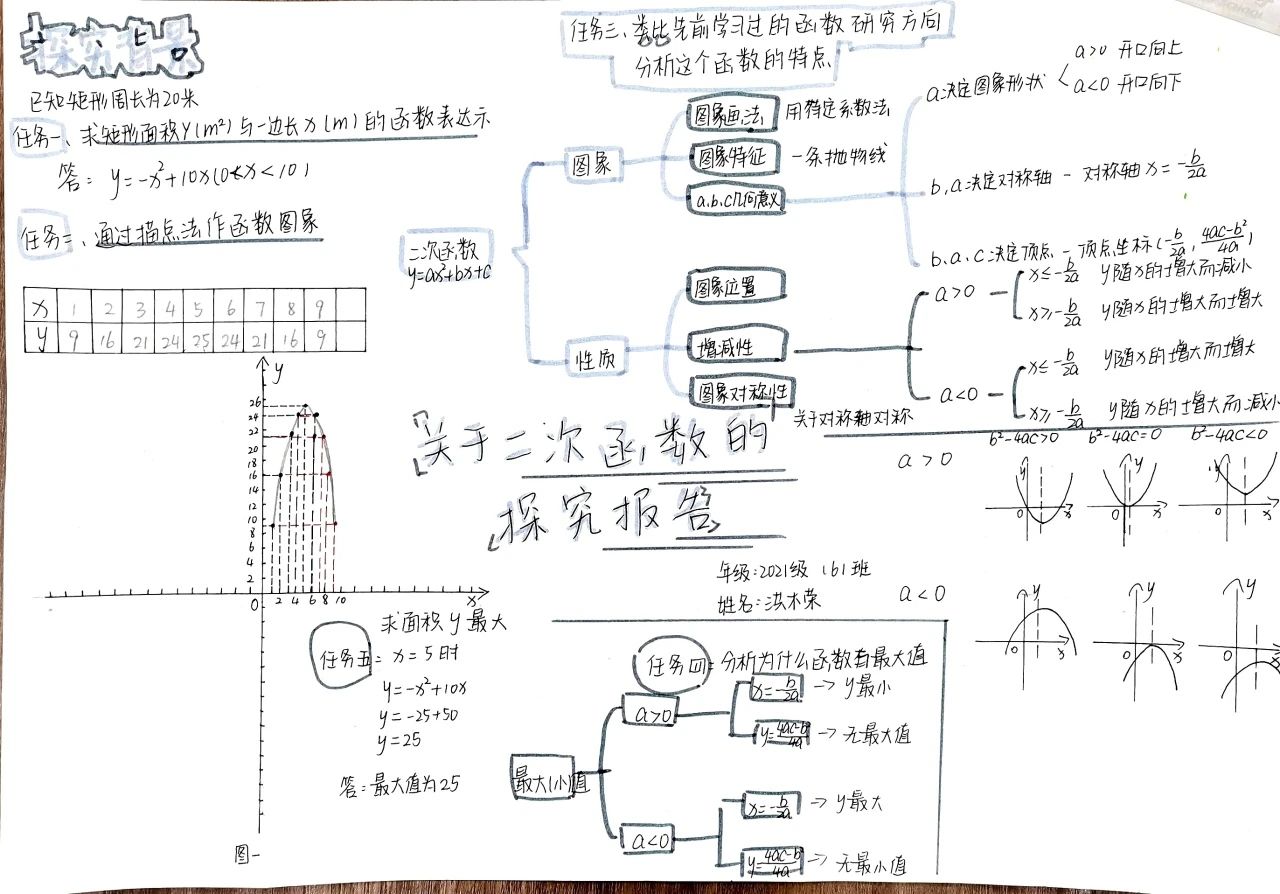 探究背景
已知矩形周长为20米
任务一、求矩形面积y(m²)与一边长x(m)的函数表达示
答: y=-x²+10x(0<x<10)
任务二、通过描点法作函数图象
x 1 2 3 4 5 6 7 8 9
y 9 16 21 24 25 24 21 16 9
y
26
24
22
20
18
16
14
12
10
8
6
4
2
0 2 4 6 8 10 x
图一
任务五: 求面积y最大
x=5时
y=-x²+10x
y=-25+50
y=25
答:最大值为25
任务三、类比先前学习过的函数研究方向
分析这个函数的特点
二次函数
y=ax²+bx+c
图象
图象画法 用待定系数法
图象特征 一条抛物线
a.b.c几何意义
a决定图象形状
a>0 开口向上
a<0 开口向下
b,a决定对称轴 - 对称轴x=-b/2a
b.a.c决定顶点-顶点坐标(-b/2a, 4ac-b²/4a)
性质
图象位置
增减性
图象对称性
关于对称轴对称
a>0
x≤-b/2a y随x的增大而减小
x≥-b/2a y随x的增大而增大
a<0
x≤-b/2a y随x的增大而增大
x≥-b/2a y随x的增大而减小
「关于二次函数的
探究报告」
年级:2021级 (6)班
姓名:洪木荣
b²-4ac>0 b²-4ac=0 b²-4ac<0
a>0
y 0 x
y 0 x
y 0 x
a<0
y 0 x
y 0 x
y 0 x
任务四:分析为什么函数有最大值
最大(小)值
a>0
x=-b/2a → y最小
y=4ac-b²/4a → 无最大值
a<0
x=-b/2a → y最大
y=4ac-b²/4a → 无最小值